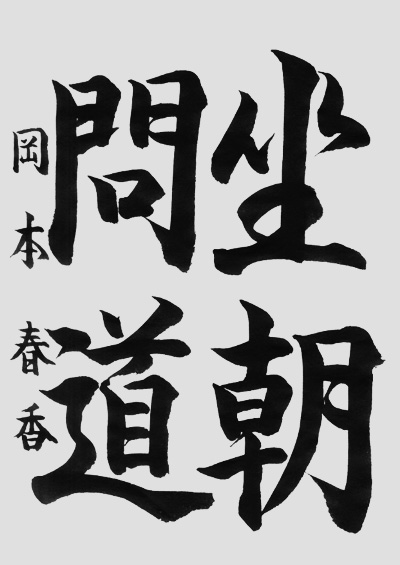 坐朝
問道
岡本春香